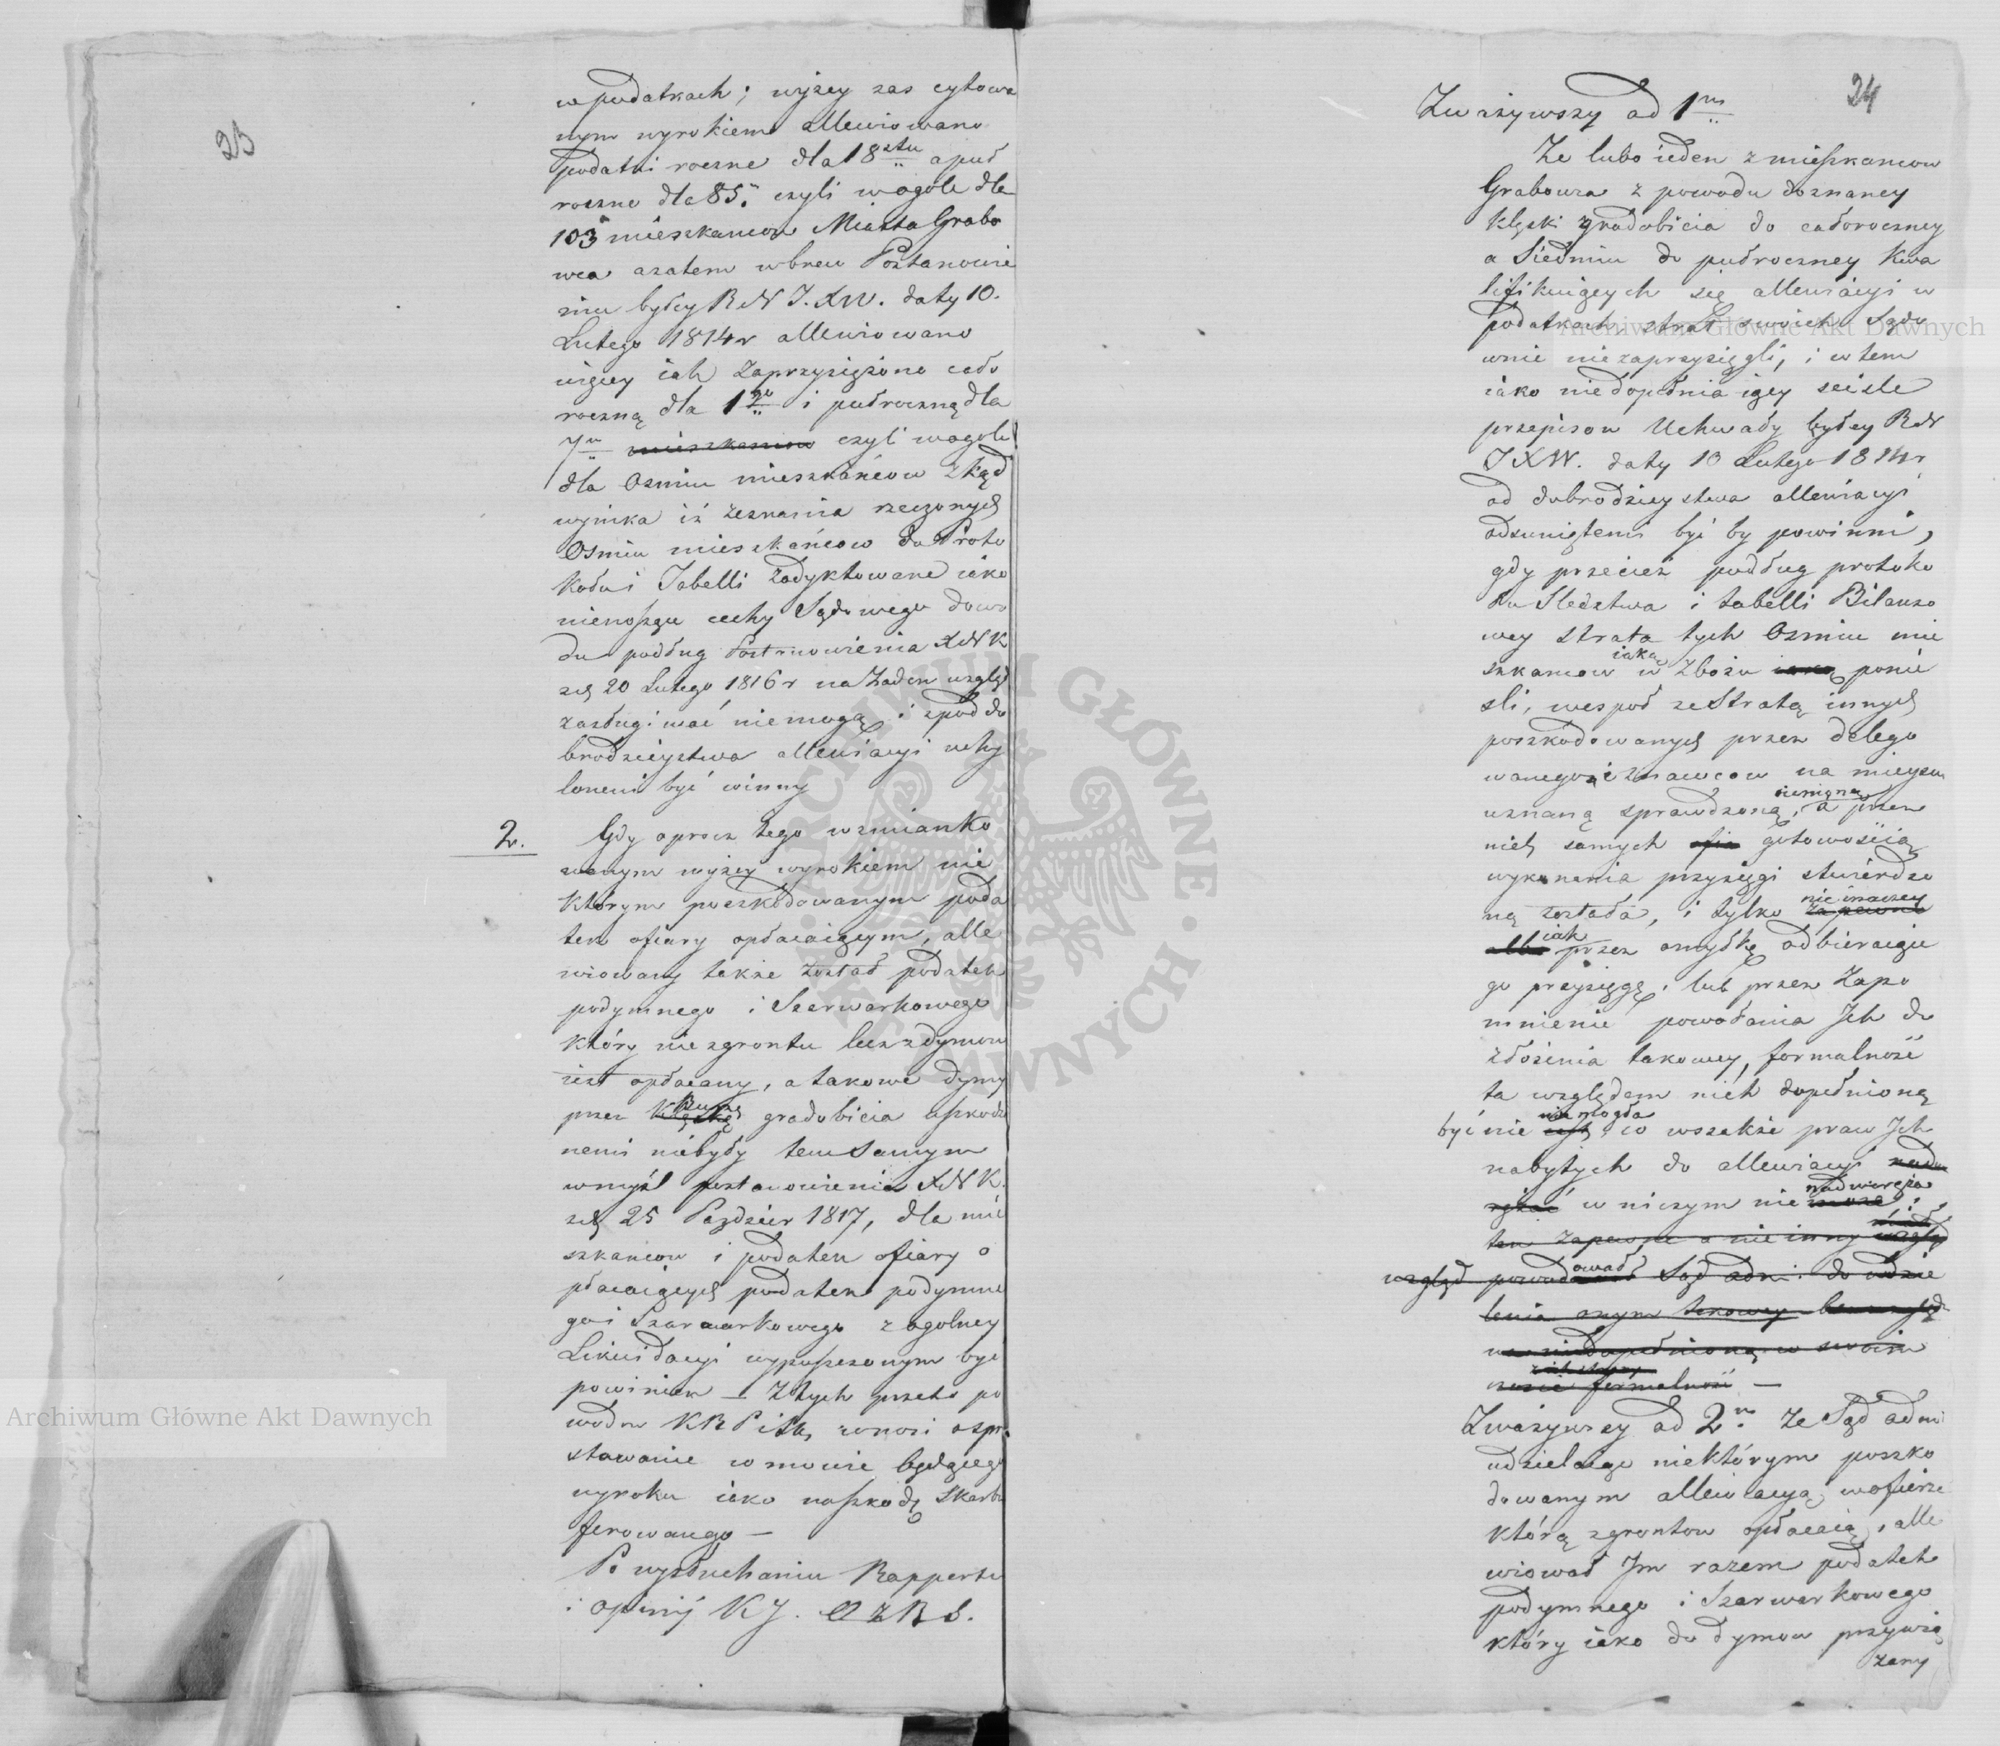 23
w podatkach; wyzey zas cytowa
nym wyrokiem allewiowano
podatki roczne dla 18stu a puł
roczne dla 85. czyli wogole dla
103 mieszkancow Miasta Grabo
wca azatem wbrew Postanowie
niu byłey RN X.W. daty 10.
Lutego 1814r allewiowano
więcey iak zaprzysiężono cało
roczną dla 1go i pułroczną dla
7u mieszkancow czyli wogole
dla Osmiu mieszkańcow zkąd
wynika iż zeznania rzeczonych
Osmiu mieszkańcow do Proto
kołu i Tabelli zadyktowane iako
nienoszące cechy Sądowego dowo
du podług Postanowienia XNK
zdz 20 Lutego 1816r na żaden wzgląd
zasługiwać niemogą i zpod do
brodzieystwa allewiacyi uchy
loneni być winny
2. Gdy oprocz tego wzmianko
wanym wyżey wyrokiem nie
którym poszkodowanym poda
tek ofiary opłacaiącym, alle
wiowany także został podatek
podymnego i Szarwarkowego
który nie zgrontu lecz zdymow
iest opłacany, a takowe dymy
przez klęskę Burzę gradobicia uszkodzo
nemi niebyły tem samym
wmyśl postanowienia XNK.
zdz 25 Paździer 1817, dla mie
szkancow i podatek ofiary o
płacaiących podatek podymne
go i Szarwarkowego z ogolney
Likwidacyi wypuszczonym być
powinien — Z tych przeto po
wodow KRPiSk wnosi o spro
stowanie w mowie będącego
wyroku iako naszkodę Skarbu
ferowanego —
Po wysłuchaniu Rapportu
i opinij KJ.
24
Zważywszy ad 1m
Ze lubo ieden z mieszkancow
Grabowca z powodu doznaney
klęski gradobicia do całoroczney
a Siedmiu do pułroczney kwa
lifikuiących się allewiacyi w
podatkach, strat swoich Sądo
wnie niezaprzysięgli, i w tem
iako niedopełniaiący scisle
przepisow Uchwały byłey RN
XW. daty 10 Lutego 1814r
od dobrodzieystwa allewiacyi
odsunięteni być by powinni,
gdy przecież podług protoko
łu Sledztwa i tabelli Bilanso
wey strata tych Osmiu mie
szkancow iaką w Zbożu iaką ponie
sli, wespoł ze Stratą innych
poszkodowanych przez delego
wanego i znawcow na mieyscu
uznaną sprawdzoną, a przez
nich samych ofia gotowością
wykonania przysięgi stwierdzo
ną została, i tylko nie inaczey zapewne
albo iak przez omyłkę odbieraiące
go przysięgę, lub przez zapo
mnienie powołania Ich do
złożenia takowey, formalność
ta względem nich dopełnioną
być nie niemogła co wszakże praw Ich
nabytych do allewiacyi nadwe
rężać w niczym nie może nadweręża,
ten zapewne a nie inny wzgląd
wzgląd powodował Sąd admi. do udzie
lenia onym takowey
niedopełnioną w swoim
czasie formalność —
Zważywszy ad 2m Ze Sąd admi
udzielaiąc niektórym poszko
dowanym allewiacyą w ofierze
którą zgrontow opłacaią, alle
wiował Im razem podatek
podymnego i Szarwarkowego
który iako do dymow przywią
zany
Archiwum Główne Akt Dawnych
Archiwum Główne Akt Dawnych
ARCHIWUM GŁÓWNE AKT DAWNYCH